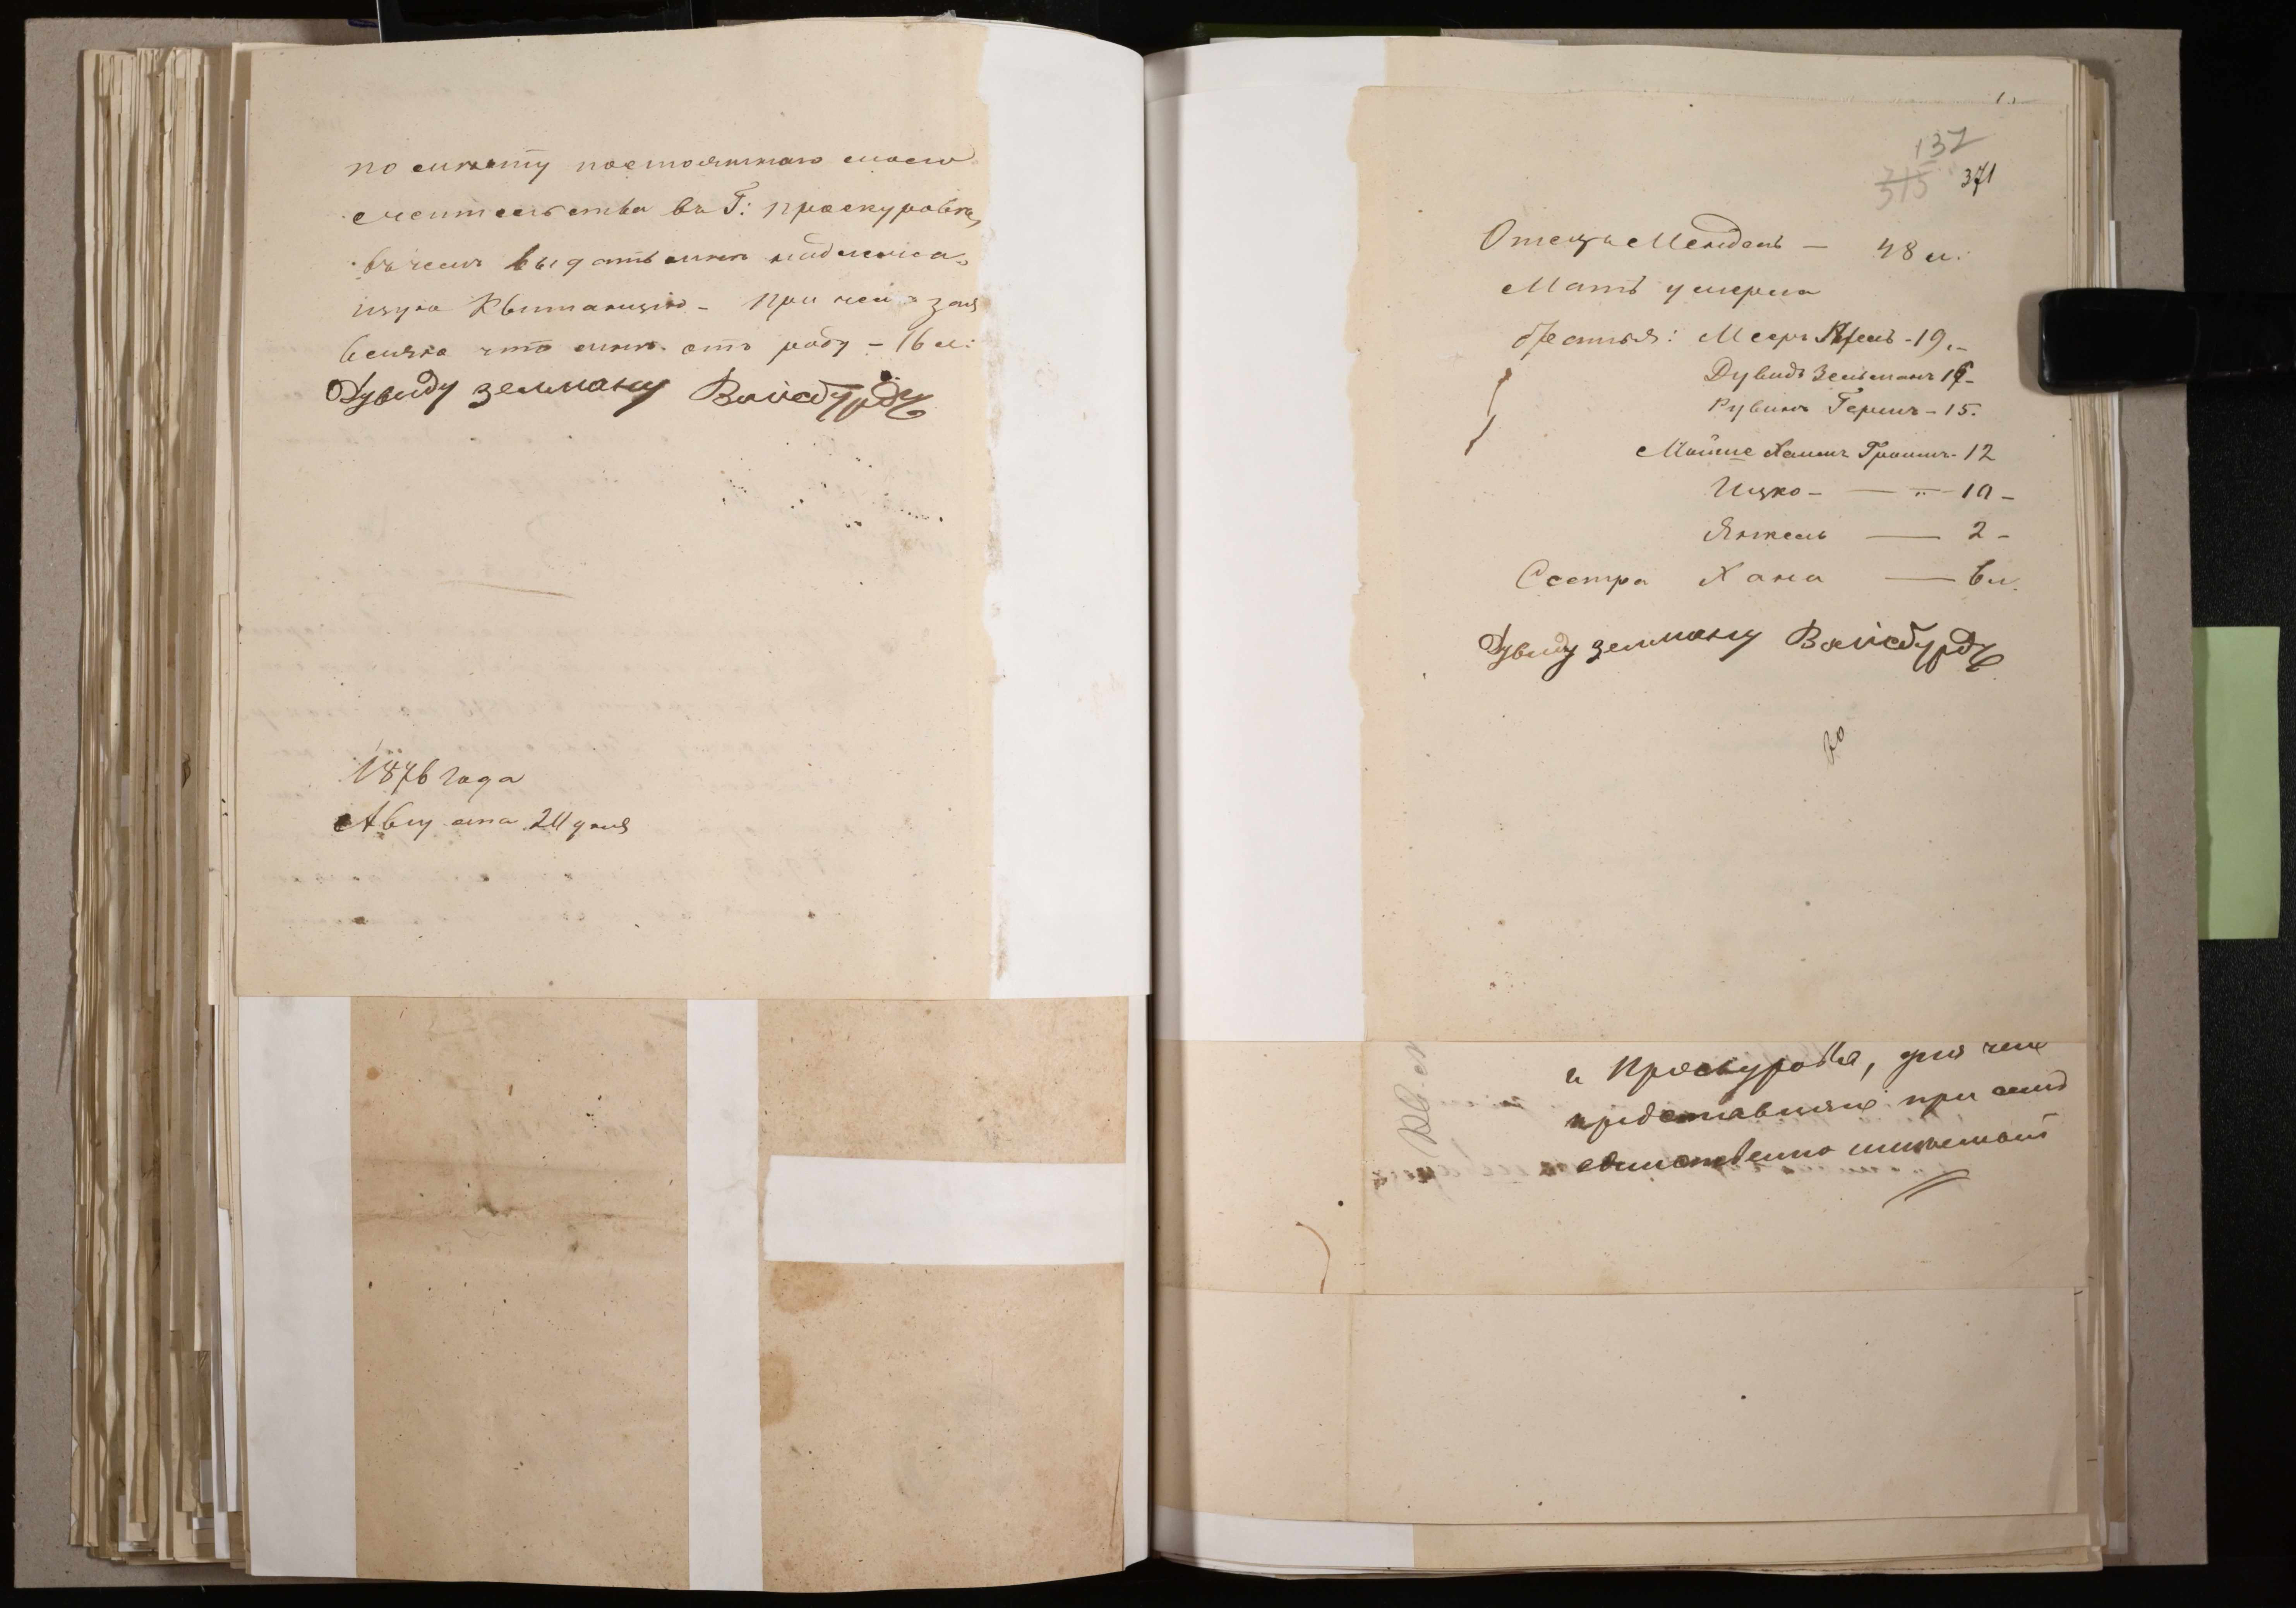 по сикету постояннаго моего
жительства въ Г: Проскуровѣ,
въ чемъ выдать мнѣ надлежа-
щую Квитанцію - При чемъ зая
вляю что мнѣ отъ роду - 16 л:
Дувиду Зельману Вайсбурду
1876 года
Августа 24 дня
137
315 371
Отецъ Мендель — 48 л.
Мать умерла
братья: Мееръ -19.-
Дувидъ Зельманъ 16-
Рувинъ Гершъ - 15.
Мойше Хаимъ - 12
Ицко - — " — 10 -
Янкель — 2 -
Сестра Хана — 6 л.
Дувиду Зельману Вайсбурду
г. Проскурова, для чего
представляя при семъ